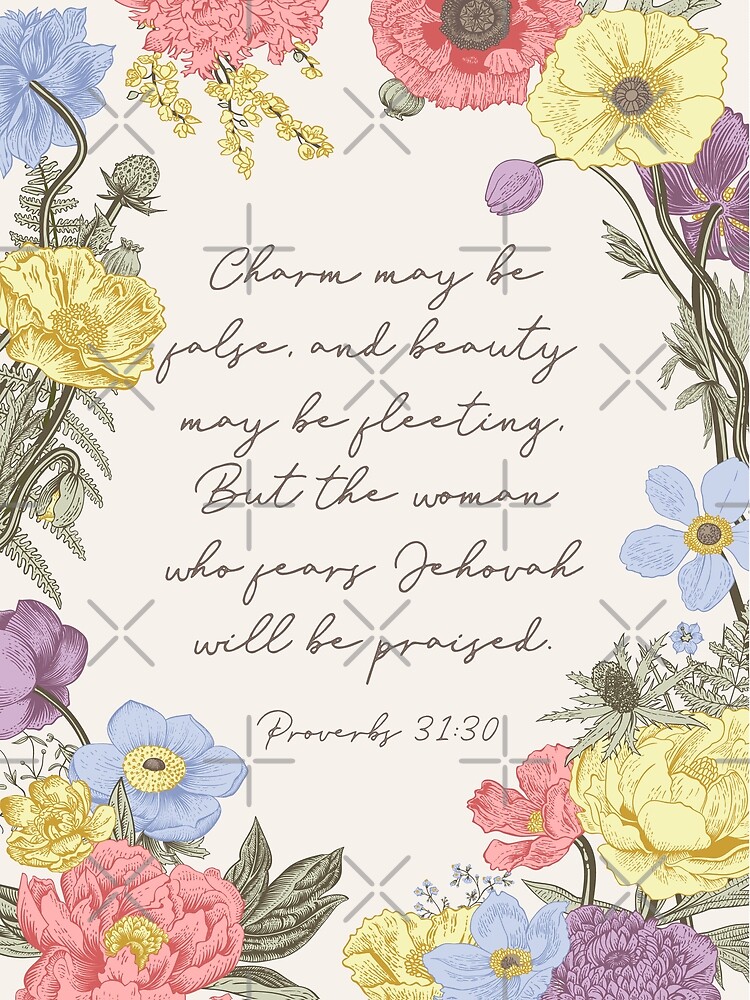 Charm may be
false, and beauty
may be fleeting,
But the woman
who fears Jehovah
will be praised.
Proverbs 31:30